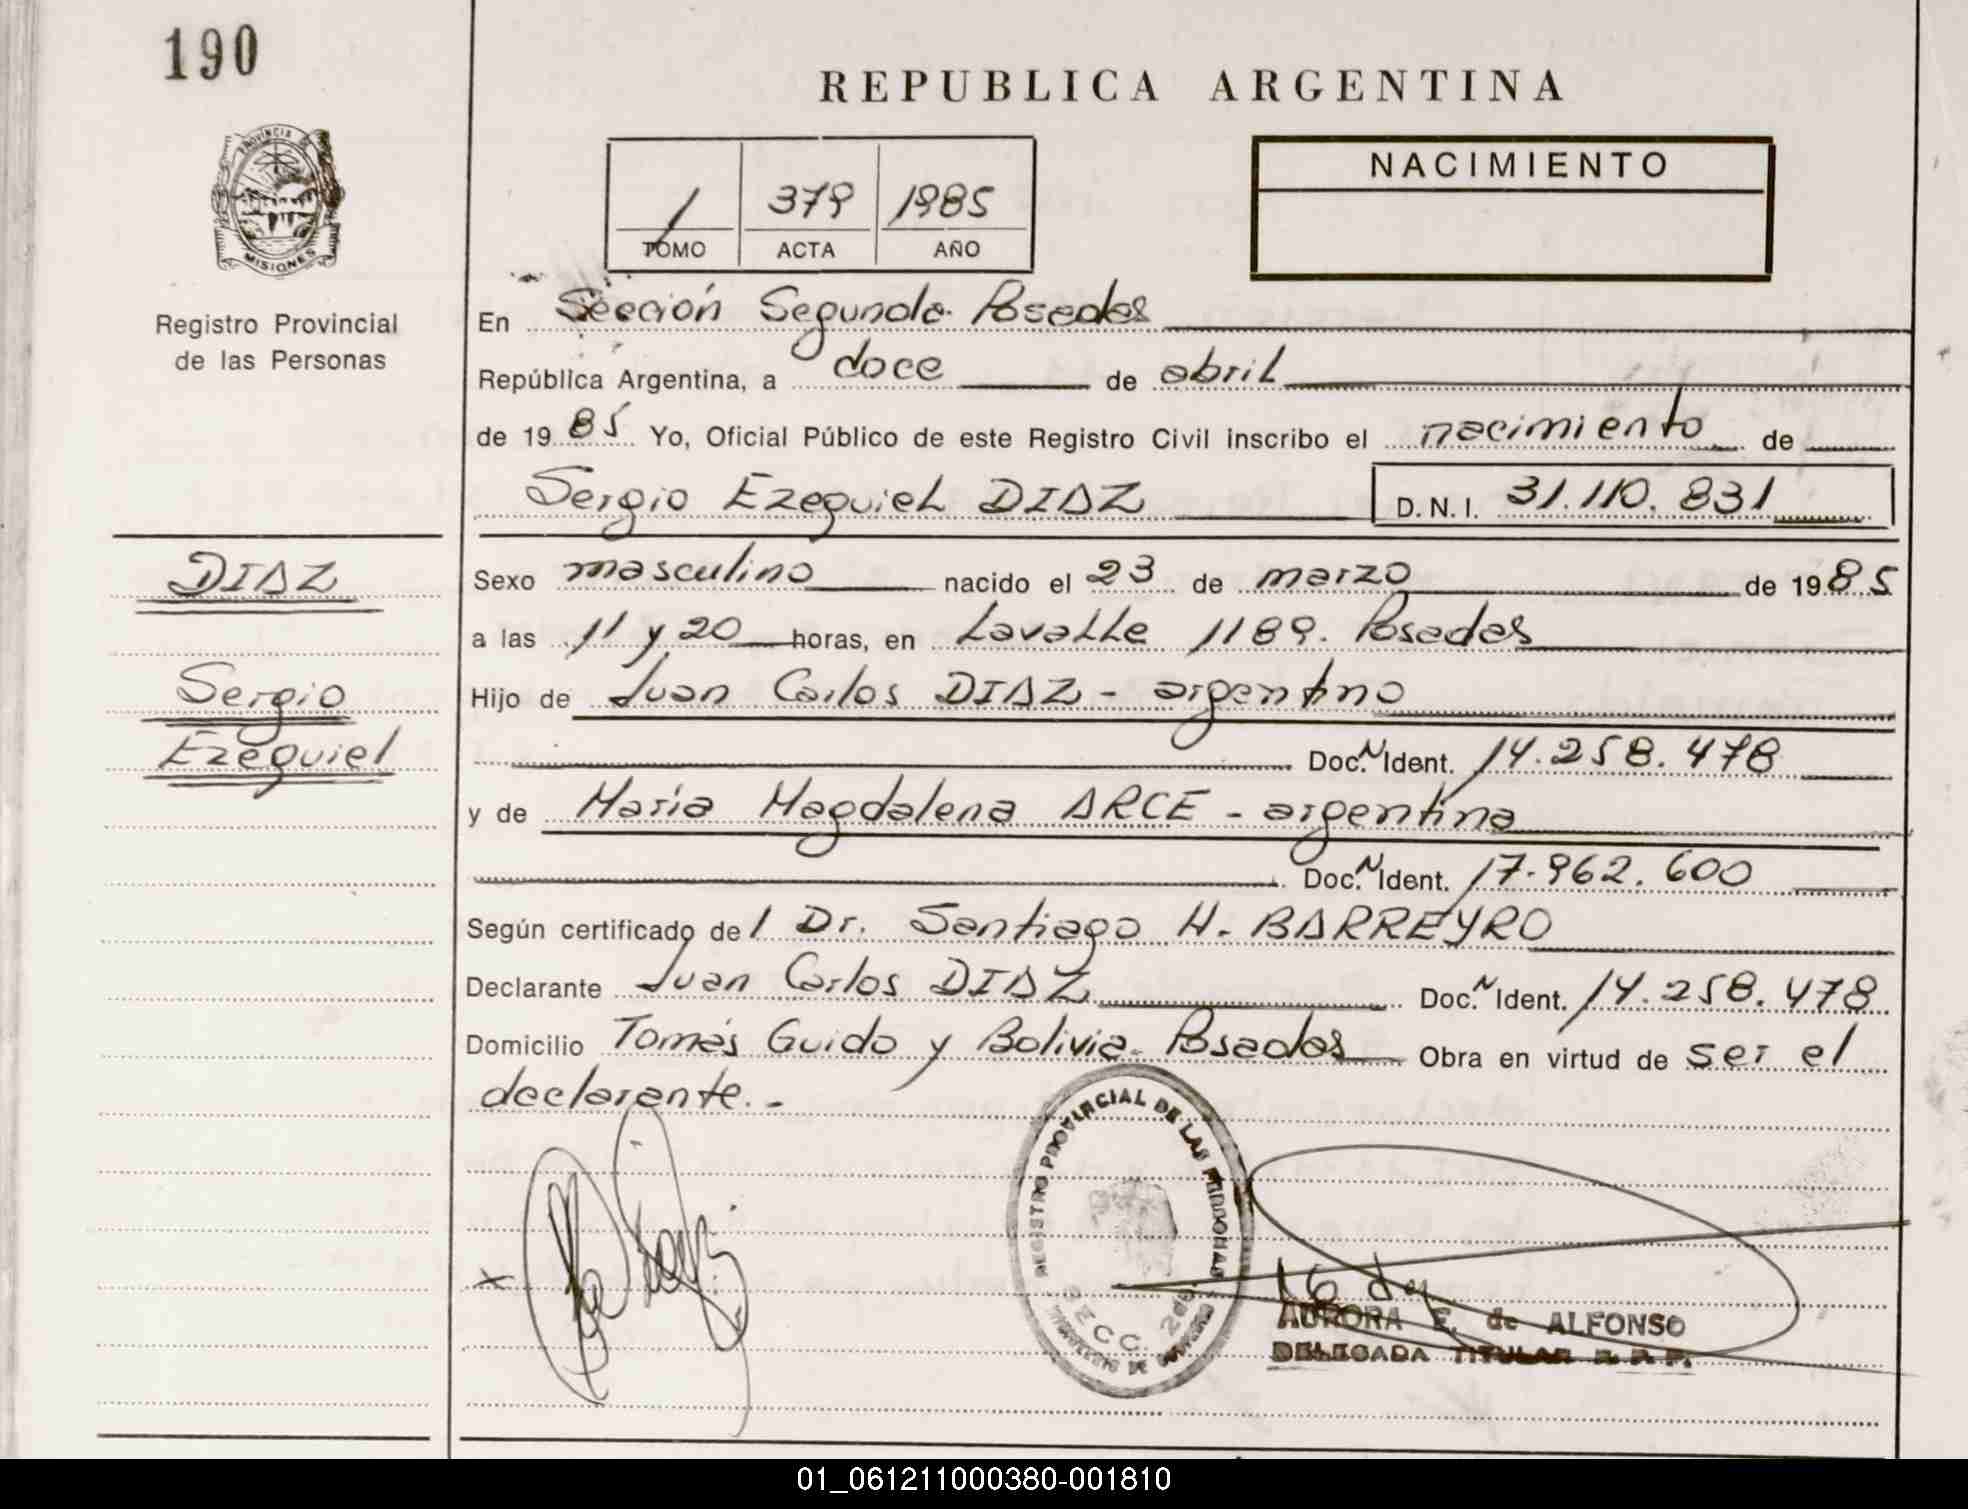 190
REPUBLICA ARGENTINA
PROVINCIA DE
MISIONES
Registro Provincial
de las Personas
1 379 1985
TOMO ACTA AÑO
NACIMIENTO
En Sección Segunda Posadas
República Argentina, a doce de abril
de 1985 Yo, Oficial Público de este Registro Civil inscribo el nacimiento de
Sergio Ezequiel DIAZ D.N.I. 31.110.831
DIAZ
Sergio
Ezequiel
Sexo masculino nacido el 23 de marzo de 1985
a las 11 y 20 horas, en Lavalle 1189. Posadas
Hijo de Juan Carlos DIAZ - argentino
Doc. N Ident. 14.258.478
y de María Magdalena ARCE - argentina
Doc. N Ident. 17.962.600
Según certificado del Dr. Santiago H. BARREYRO
Declarante Juan Carlos DIAZ Doc. N Ident. 14.258.478
Domicilio Tomás Guido y Bolivia. Posadas Obra en virtud de ser el
declarante.-
REGISTRO PROVINCIAL DE LAS PERSONAS
SECC. 2da
x
AURORA E. de ALFONSO
DELEGADA TITULAR R. P. P.
01_061211000380-001810